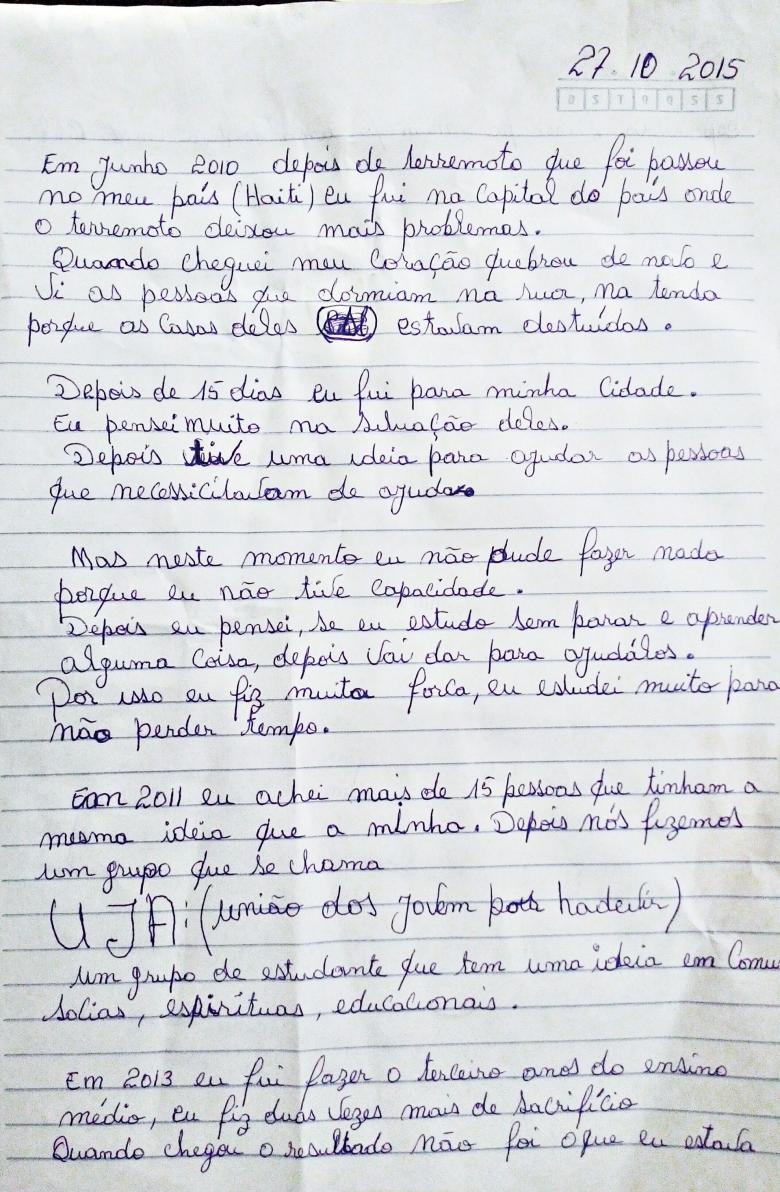 27.10 2015
Em Junho 2010 depois de terremoto que foi passou
no meu país (Haiti) eu fui na Capital do país onde
o terremoto deixou mais problemas.
Quando cheguei meu Coração quebrou de novo e
Vi as pessoas que dormiam na rua, na tenda
porque as Casas deles estavam destuídas.
Depois de 15 dias eu fui para minha Cidade.
Eu pensei muito na situação deles.
Depois tive uma ideia para ajudar as pessoas
que necessicitavam de ajuda.
Mas neste momento eu não pude fazer nada
porque eu não tive Capacidade.
Depois eu pensei, se eu estudo sem parar e aprender
alguma Coisa, depois Vai dar para ajudálos.
Por isso eu fiz muita forca, eu estudei muito para
não perder tempo.
Em 2011 eu achei mais de 15 pessoas que tinham a
mesma ideia que a minha. Depois nós fizemos
um grupo que se chama
UJA: (união dos Jovem
um grupo de estudante que tem uma ideia em Comu
Socias, espirítuas, educacionais.
Em 2013 eu fui fazer o terceiro anos do ensino
médio, eu fiz duas Vezes mais de Sacrifício
Quando chegou o resultado não foi o que eu estava